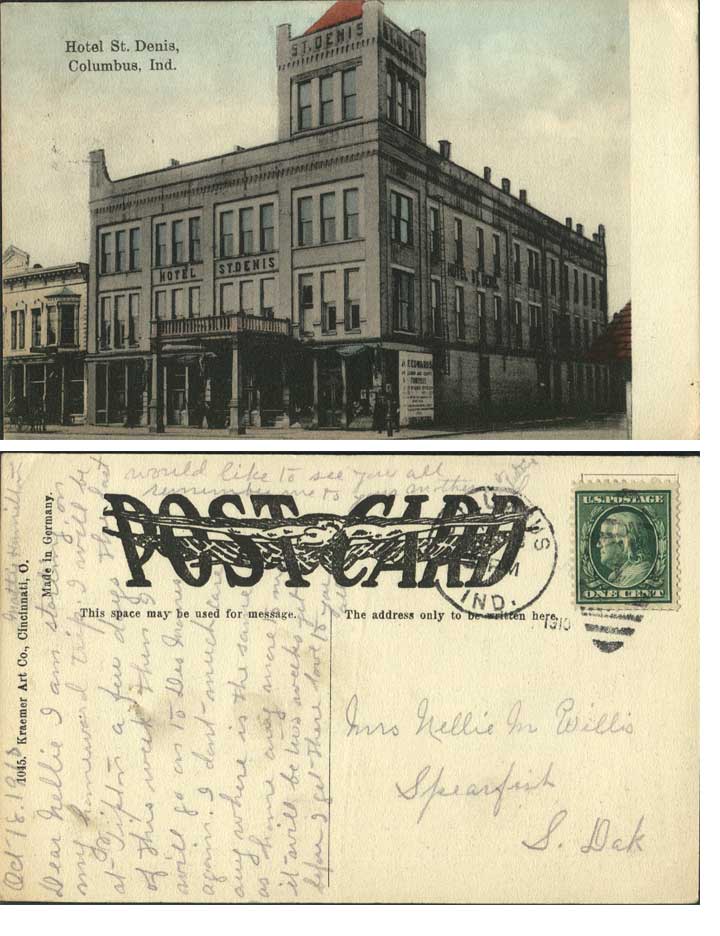 Hotel St. Denis,
Columbus, Ind.
ST. DENIS
HOTEL ST. DENIS
HOTEL ST. DENIS
would like to see you all
remember me to your mother
POST CARD
This space may be used for message.
The address only to be written here.
U.S. POSTAGE
ONE CENT
IND.
1910
Made in Germany.
1045. Kraemer Art Co., Cincinnati, O.
Mattie Hamilton
Oct 18. 1910
Dear Nellie I am starting on
my homeward trip. I will be
at Tipton a few days the last
of this week then I
will go on to Des Moines
again. I dont much care
any where is the same
as home any more
it will be two weeks yet
before I get there love to you
all
Mrs Nellie M Willis
Spearfish
S. Dak